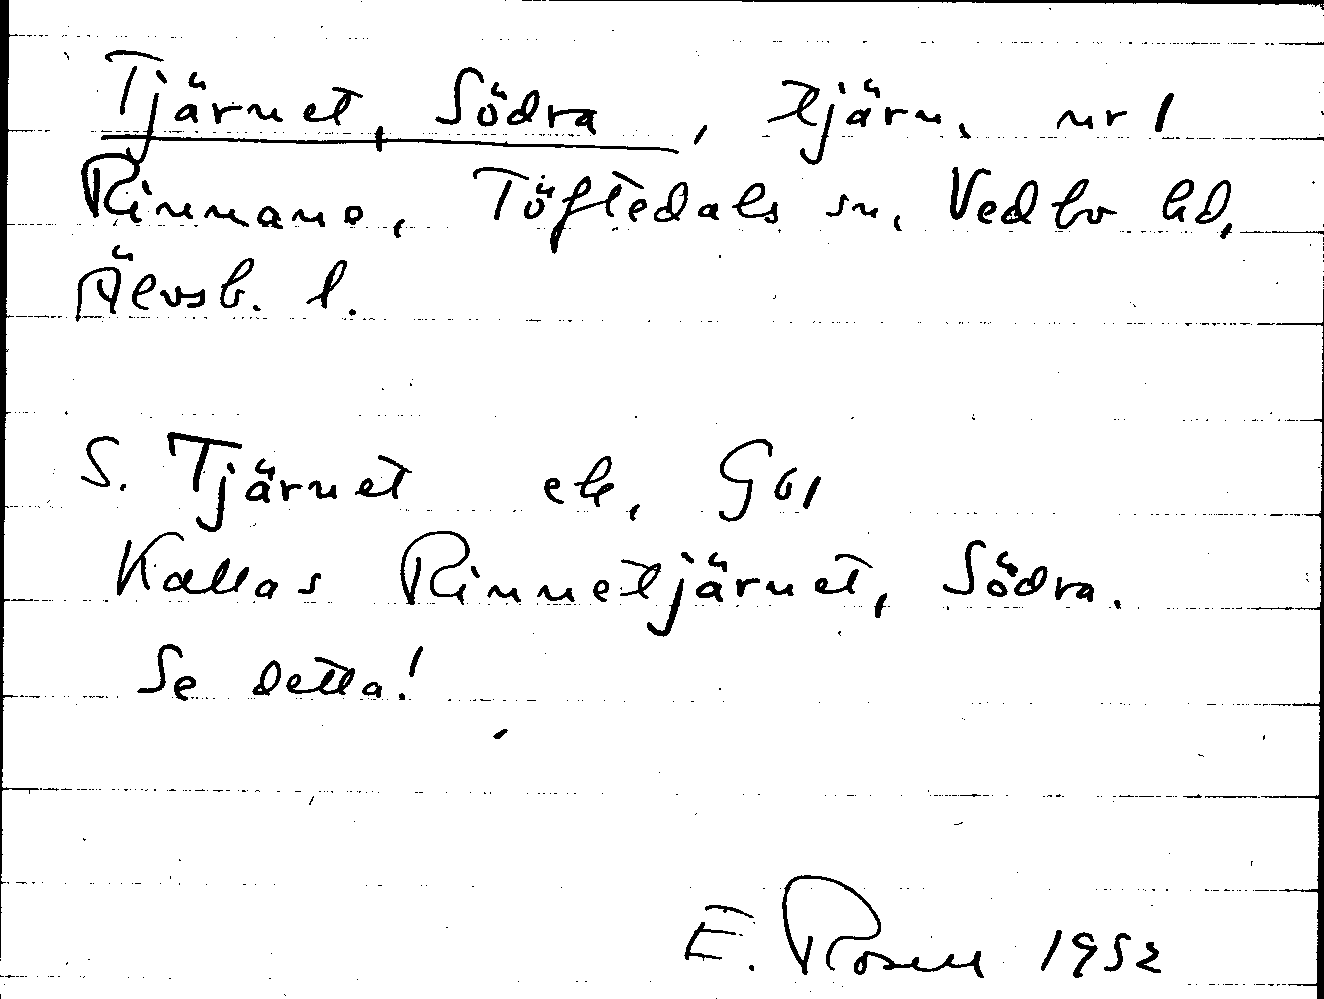 Tjärnet, Södra, tjärn, nr 1
Rinnano, Töftedals sn, Vedbo hd,
Älvsb. l.
S. Tjärnet ek, G61
Kallas Rinnetjärnet, Södra.
Se detta!
E. Rosell 1952